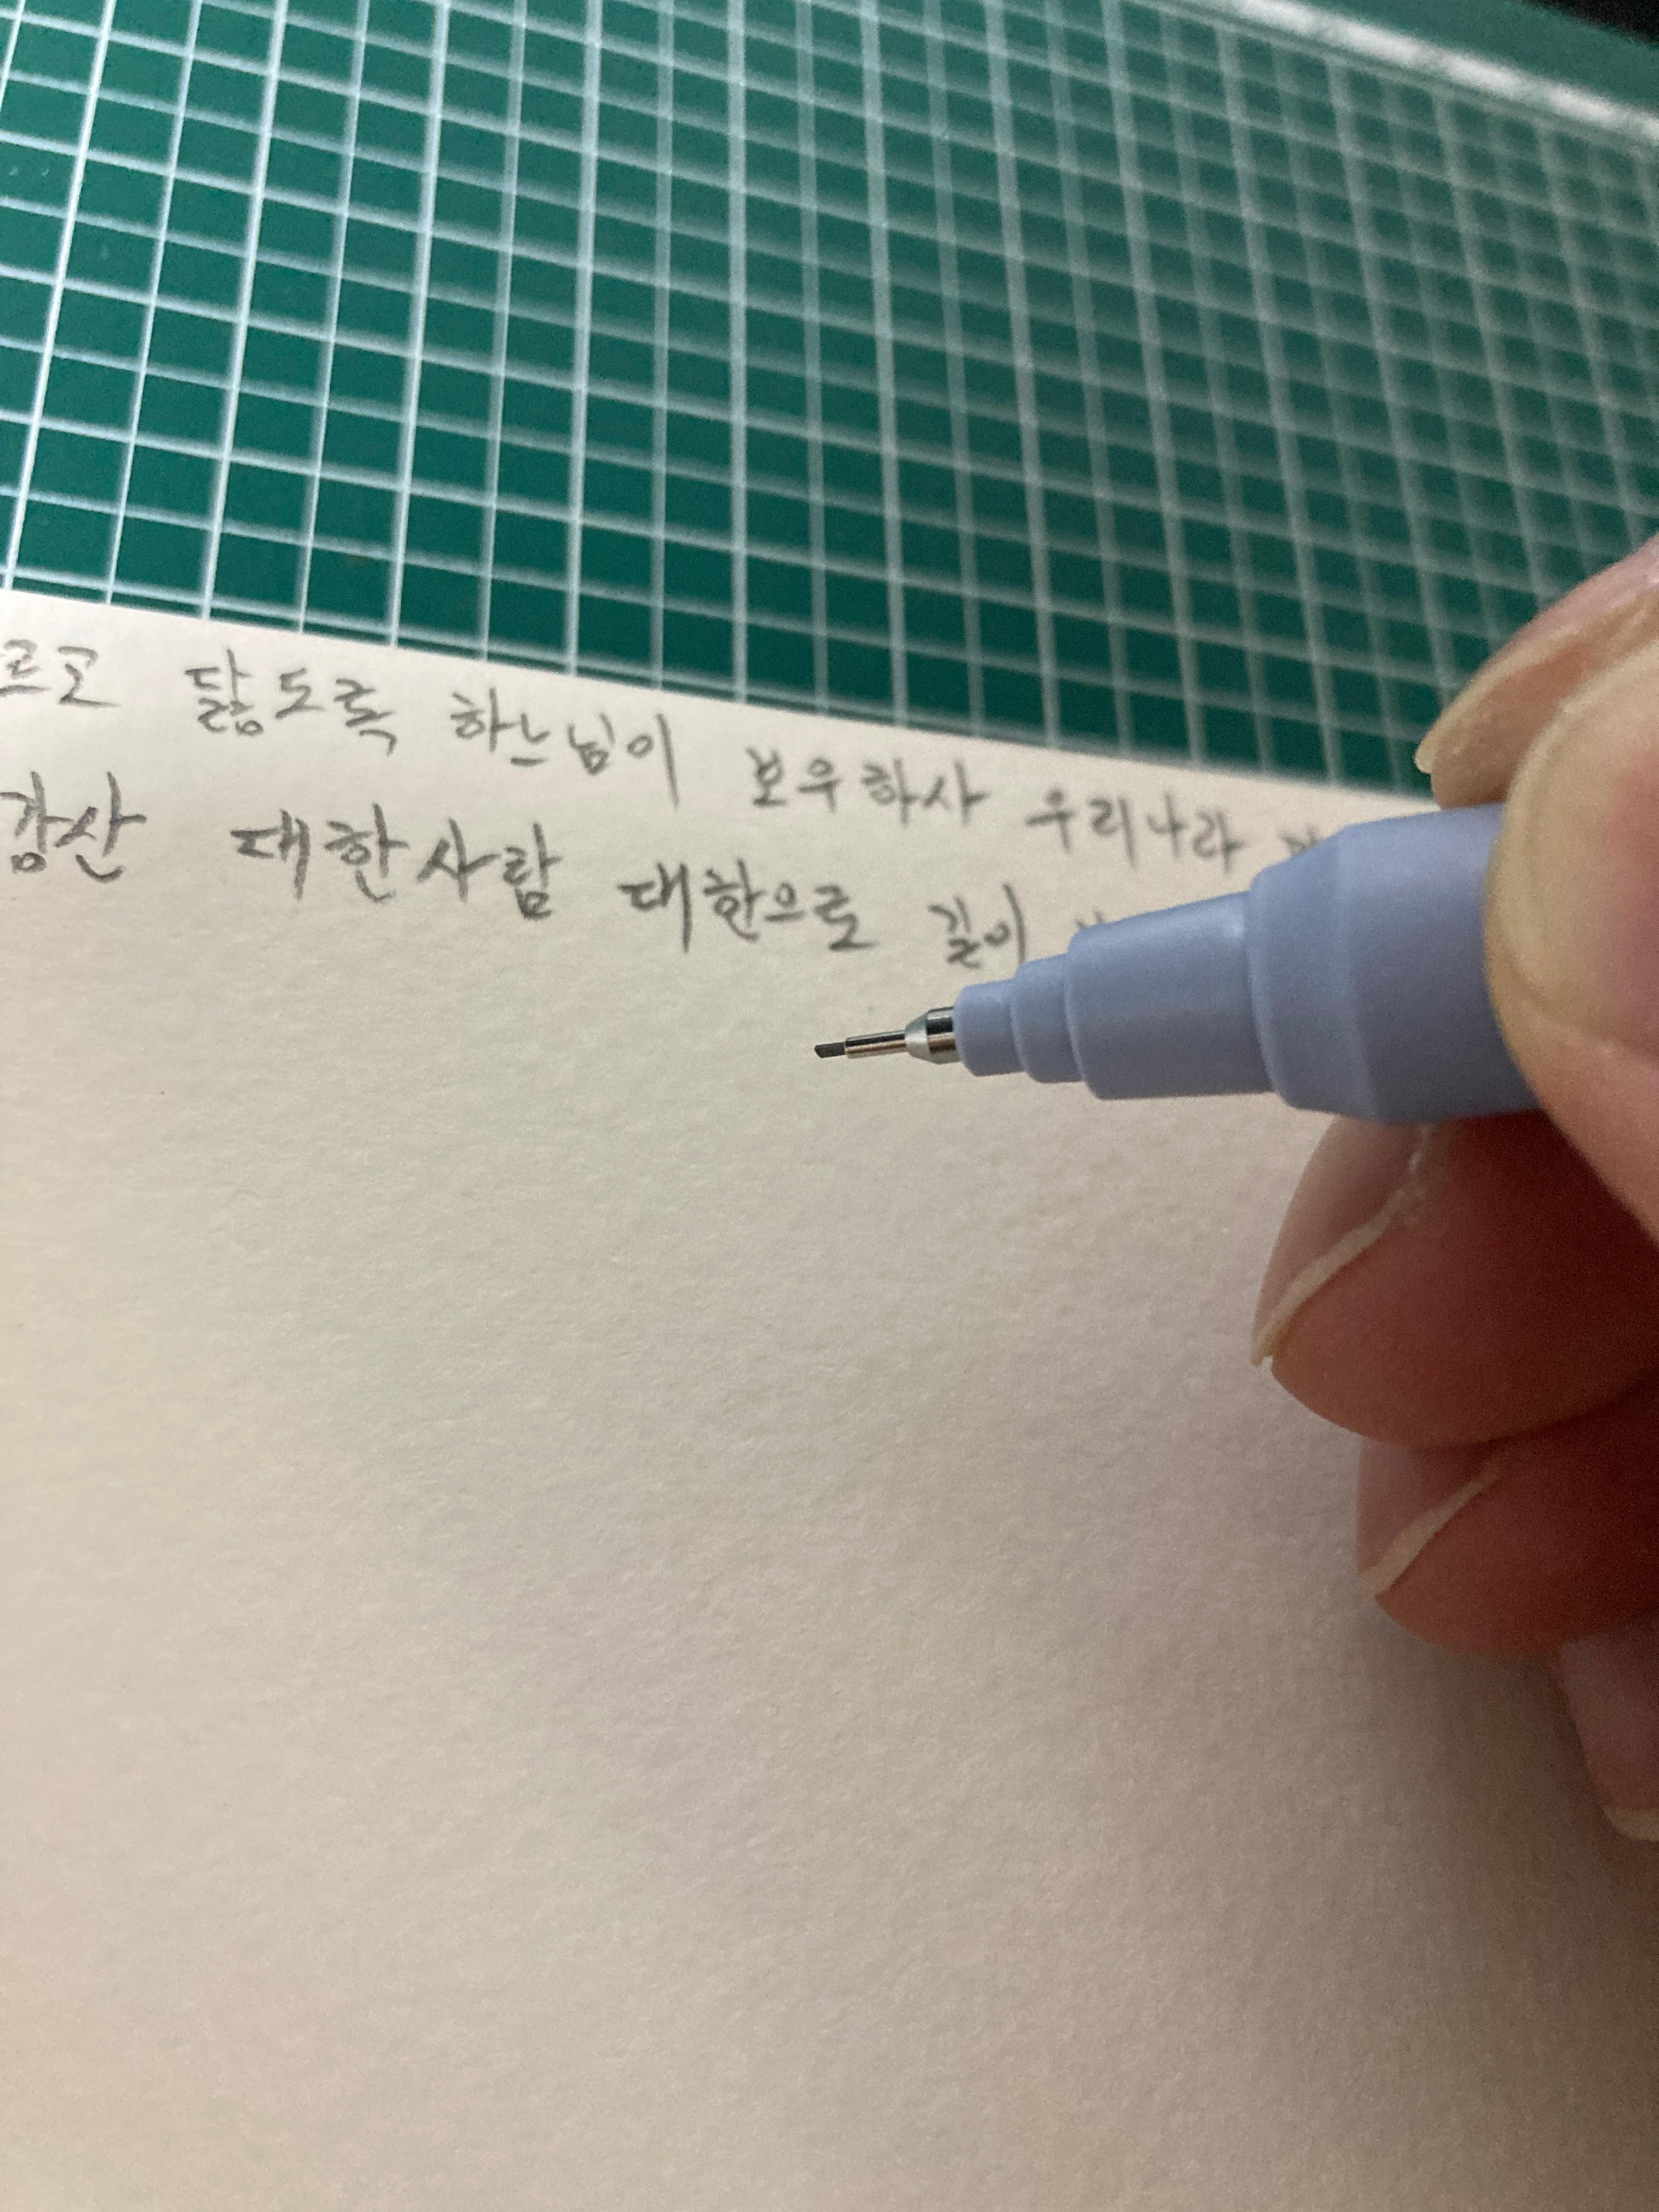 르고 닳도록 하느님이 보우하사 우리나라
강산 대한사람 대한으로 길이